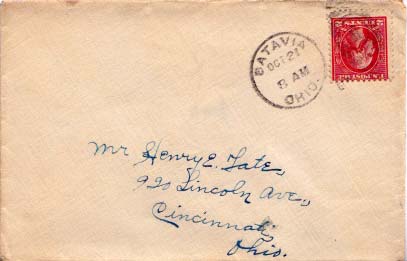 BATAVIA
OCT 21
8 AM
OHIO.
Mr Henry E. Tate,
920 Lincoln Ave.,
Cincinnati,
Ohio.